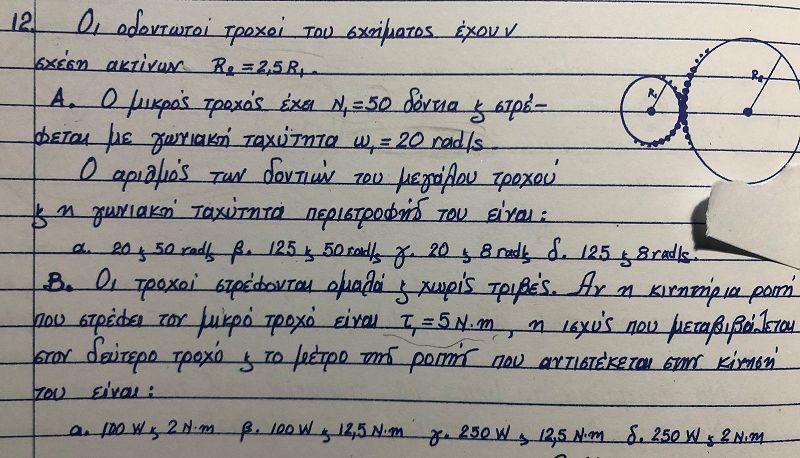 12. Οι οδοντωτοί τροχοί του σχήματος έχουν
σχέση ακτίνων R₂ = 2,5 R₁.
R₁
R₂
Α. Ο μικρός τροχός έχει N₁ = 50 δόντια ξ στρέ-
φεται με γωνιακή ταχύτητα ω₁ = 20 rad/s.
Ο αριθμός των δοντιών του μεγάλου τροχού
ξ η γωνιακή ταχύτητα περιστροφής του είναι:
α. 20 ξ 50 rad/s β. 125 ξ 50 rad/s γ. 20 ξ 8 rad/s δ. 125 ξ 8 rad/s.
Β. Οι τροχοί στρέφονται ομαλά ξ χωρίς τριβές. Αν η κινητήρια ροπή
που στρέφει τον μικρό τροχό είναι τ₁ = 5 N·m, η ισχύς που μεταβιβάζεται
στον δεύτερο τροχό ξ το μέτρο της ροπής που αντιστέκεται στην κίνησή
του είναι:
α. 100 W ξ 2 N·m β. 100 W ξ 12,5 N·m γ. 250 W ξ 12,5 N·m δ. 250 W ξ 2 N·m